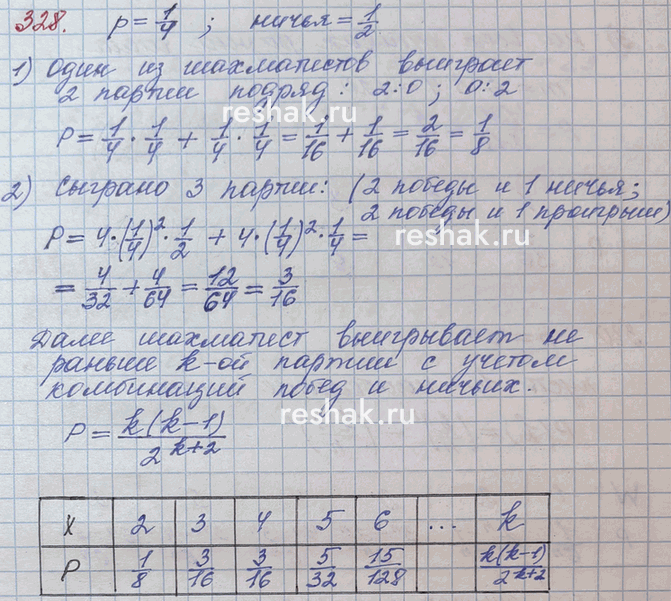 328. p = 1/4 ; ничья = 1/2
1) Один из шахматистов выиграет
2 партии подряд: 2:0; 0:2
reshak.ru
P = 1/4 · 1/4 + 1/4 · 1/4 = 1/16 + 1/16 = 2/16 = 1/8
2) Сыграно 3 партии: (2 победы и 1 ничья;
2 победы и 1 проигрыш)
P = 4·(1/4)² · 1/2 + 4·(1/4)² · 1/4 =
reshak.ru
= 4/32 + 4/64 = 12/64 = 3/16
Далее шахматист выигрывает не
раньше k-ой партии с учетом
комбинаций побед и ничьих.
reshak.ru
P = k(k-1)/2^(k+2)
X 2 3 4 5 6 ... k
P 1/8 3/16 3/16 5/32 15/128 k(k-1)/2^(k+2)